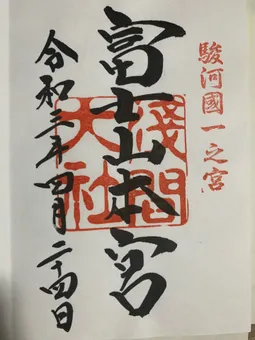 駿河國一之宮
富士山本宮
淺間
大社
令和三年四月二十四日